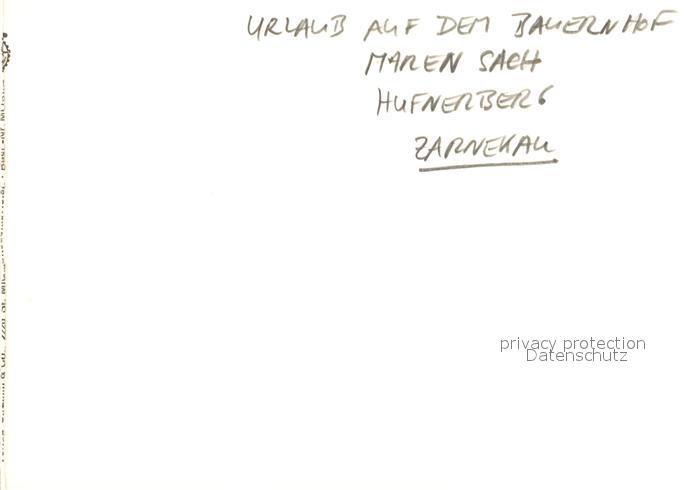 URLAUB AUF DEM BAUERNHOF
MAREN SACH
HUFNERBERG
ZARNEKAU
privacy protection
Datenschutz